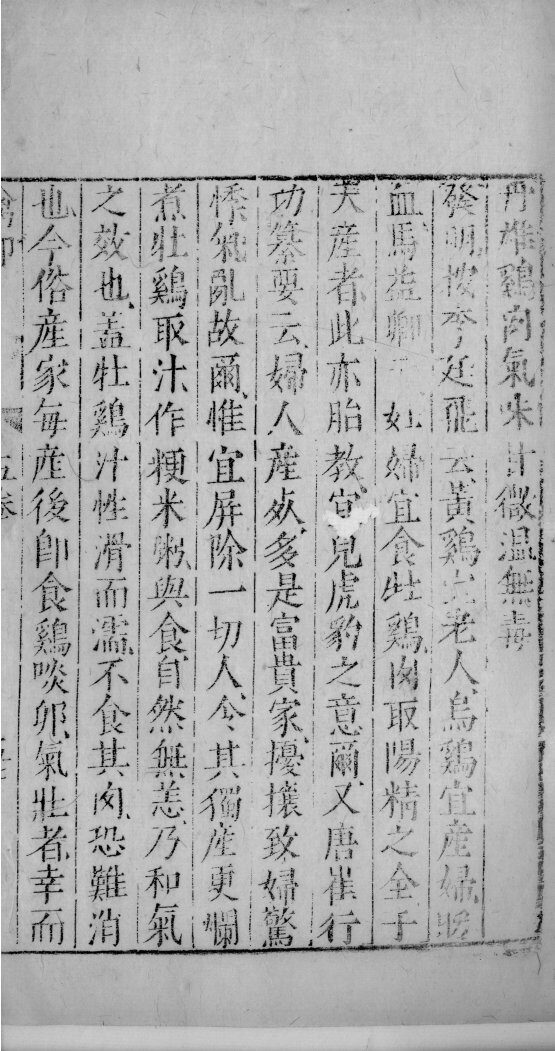 丹雄鷄肉氣味甘微温無毒
發明按李廷飛云黄鷄宜老人烏鷄宜產婦暖
血馬益卿云妊婦宜食牡鷄肉取陽精之全于
天產者此亦胎教宜見虎豹之意爾又唐崔行
功纂要云婦人產死多是富貴家擾攘致婦驚
悸氣亂故爾惟宜屏除一切人令其獨產更爛
煮牡鷄取汁作粳米粥與食自然無恙乃和氣
之效也盖牡鷄汁性滑而濡不食其肉恐難消
也今俗產家每產後卽食鷄啖卵氣壯者幸而
五卷